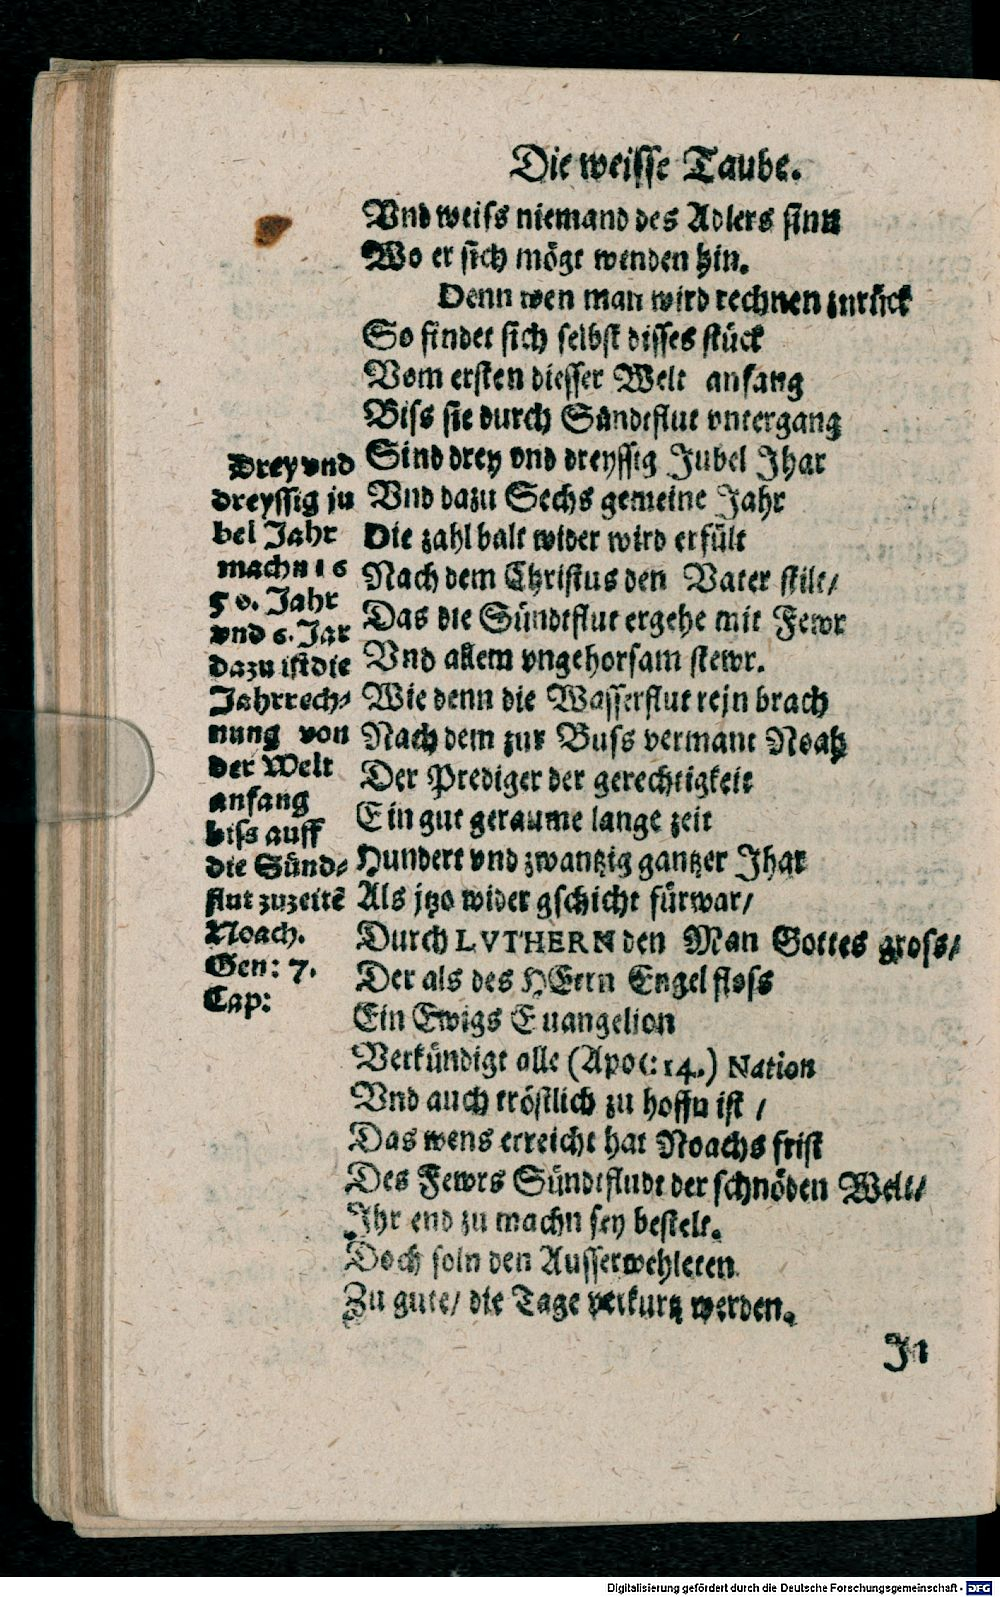 Die weisse Taube.
Vnd weiss niemand des Adlers sinn
Wo er sich mögt wenden hin.
Denn wen man wird rechnen zurück
So findet sich selbst disses stück
Vom ersten diesser Welt anfang
Biss sie durch Sündtflut vntergang
Sind drey vnd dreyssig Jubel Jhar
Vnd dazu Sechs gemeine Jahr
Die zahl balt wider wird erfült
Nach dem Christus den Vater stilt/
Das die Sündtflut ergehe mit Fewr
Vnd allem vngehorsam stewr.
Wie denn die Wasserflut rejn brach
Nach dem zur Buss vermant Noah
Der Prediger der gerechtigkeit
Ein gut geraume lange zeit
Hundert vnd zwantzig gantzer Jhar
Als jtzo wider gschicht fürwar/
Durch LVTHERN den Man Gottes gross/
Der als des HErrn Engel floss
Ein Ewigs Euangelion
Verkündigt alle (Apoc: 14.) Nation
Vnd auch tröstlich zu hoffn ist /
Das wens erreicht hat Noachs frist
Des Fewrs Sündtfludt der schnöden Welt/
Jhr end zu machn sey bestelt.
Doch soln den Ausserwehleten
Zu gute/ die Tage verkurtz werden.
Jn
Drey vnd
dreyssig ju
bel Jahr
machn 16
50. Jahr
vnd 6. Jar
dazu ist die
Jahrrech-
nung von
der Welt
anfang
biss auff
die Sünd-
flut zuzeitẽ
Noach.
Gen: 7.
Cap:
Digitalisierung gefördert durch die Deutsche Forschungsgemeinschaft - DFG